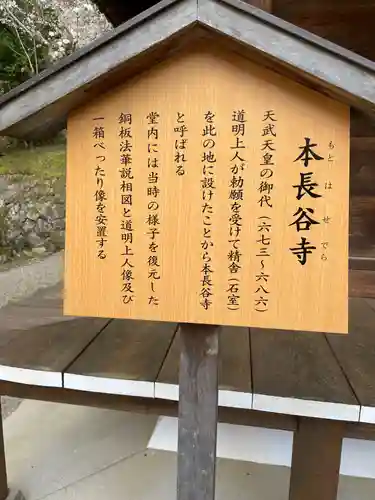 本長谷寺
もと は せ でら
天武天皇の御代(六七三~六八六)
道明上人が勅願を受けて精舎(石室)
を此の地に設けたことから本長谷寺
と呼ばれる
堂内には当時の様子を復元した
銅板法華説相図と道明上人像及び
一箱べったり像を安置する